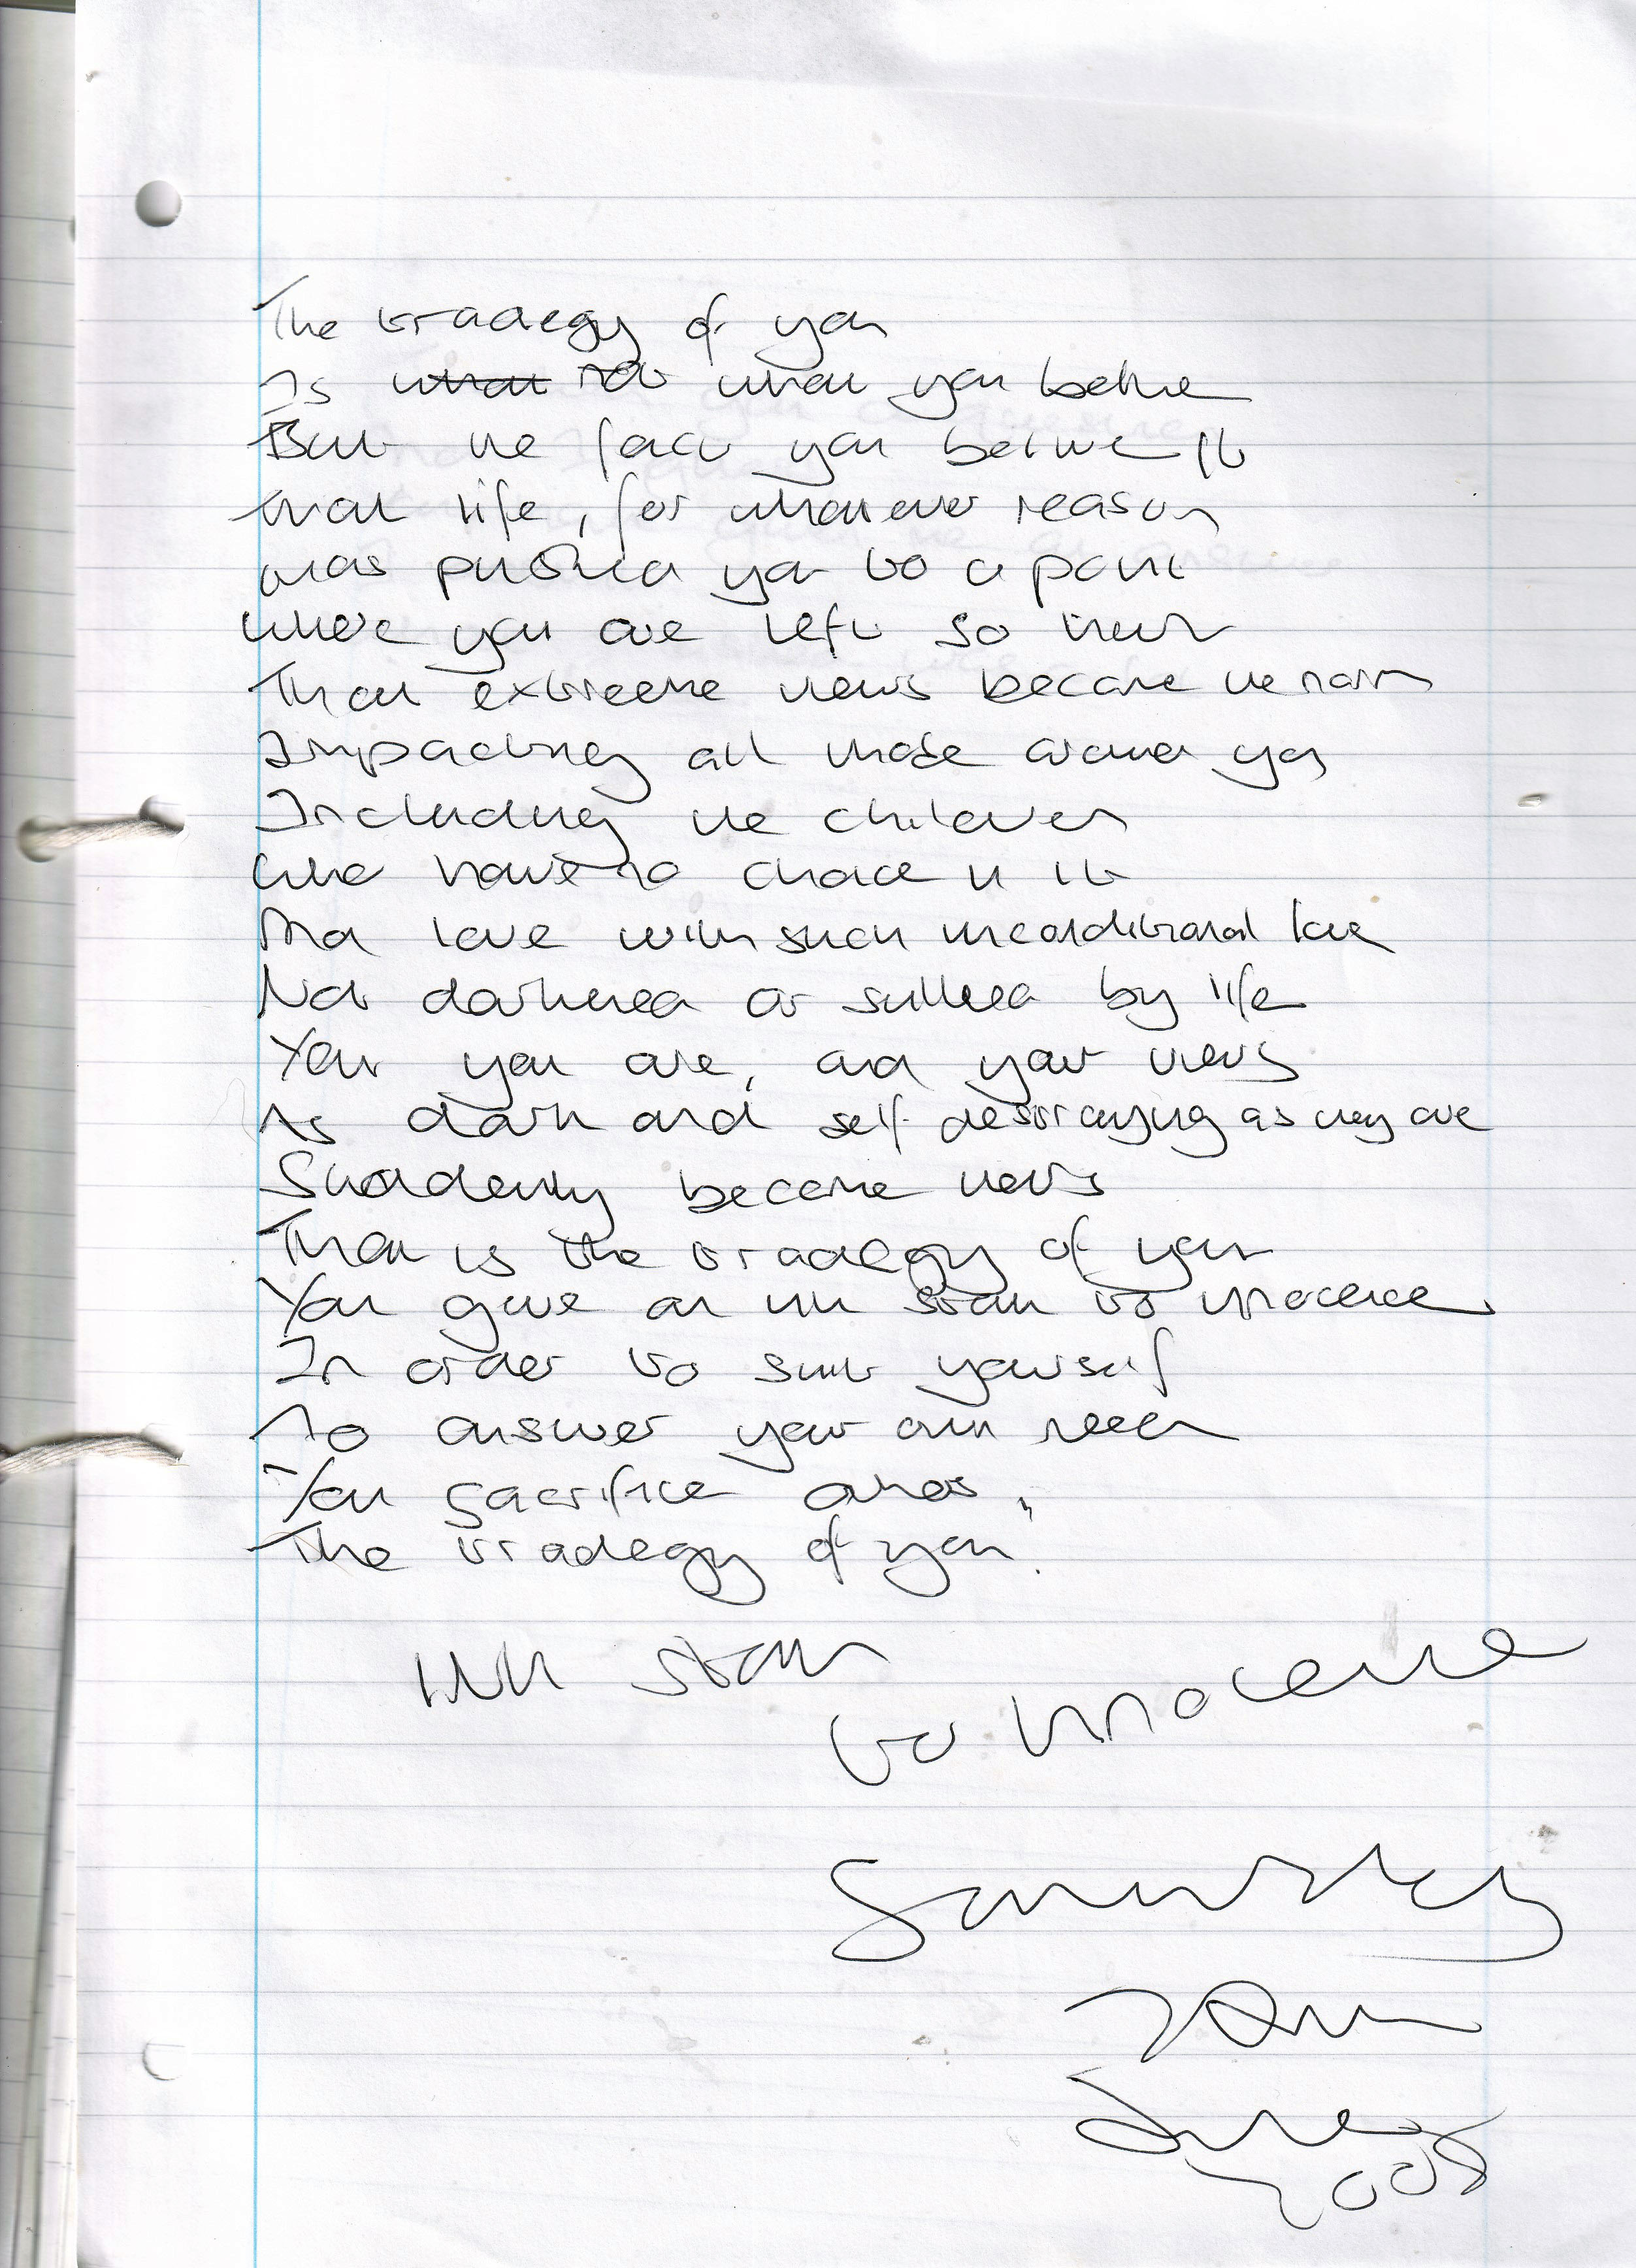 The tradegy of you
Is what not what you believe
But the fact you believe it
That life, for whatever reason
Has pushed you to a point
Where you are left so
That extreeme views become the norm
Impacting all those around you
Including the children
Who have no choice in it
And love with such unconditional love
Not darkened or sullied by life
You are, and your views
As dark and self destroying as they are
Suddenly become theirs
That is the tradegy of you
You give an ink stain to innocence
In order to suit yourself
To answer your own need
You sacrifice others,
The tradegy of you!
Ink stain
to innocence
Saturday
7th
June
2008